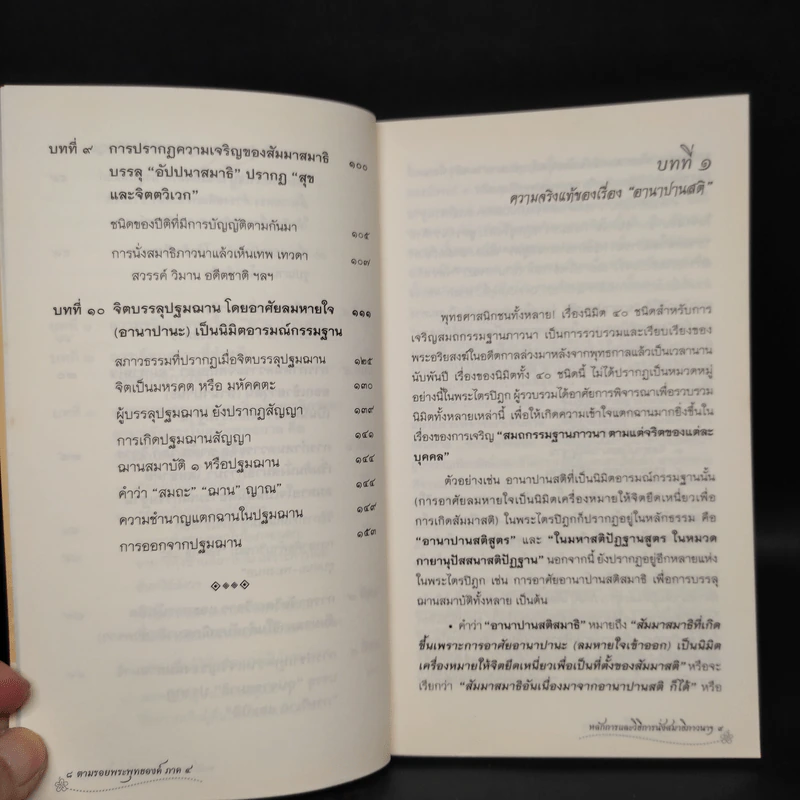 บทที่ ๙ การปรากฏความเจริญของสัมมาสมาธิ ๑๐๐
บรรลุ “อัปปนาสมาธิ” ปรากฏ “สุข
และจิตตวิเวก”
ชนิดของปีติที่มีการบัญญัติตามกันมา ๑๐๕
การนั่งสมาธิภาวนาแล้วเห็นเทพ เทวดา ๑๐๗
สวรรค์ วิมาน อดีตชาติ ฯลฯ
บทที่ ๑๐ จิตบรรลุปฐมฌาน โดยอาศัยลมหายใจ ๑๑๑
(อานาปานะ) เป็นนิมิตอารมณ์กรรมฐาน
สภาวธรรมที่ปรากฏเมื่อจิตบรรลุปฐมฌาน ๑๒๕
จิตเป็นมหรคต หรือ มหัคคตะ ๑๓๐
ผู้บรรลุปฐมฌาน ยังปรากฏสัญญา ๑๓๙
การเกิดปฐมฌานสัญญา ๑๔๑
ฌานสมาบัติ ๑ หรือปฐมฌาน ๑๔๔
คำว่า “สมถะ” “ฌาน” ญาณ” ๑๔๔
ความชำนาญแตกฉานในปฐมฌาน ๑๔๙
การออกจากปฐมฌาน ๑๕๓
๘ ตามรอยพระพุทธองค์ ภาค ๔
บทที่ ๑
ความจริงแท้ของเรื่อง “อานาปานสติ”
พุทธศาสนิกชนทั้งหลาย! เรื่องนิมิต ๔๐ ชนิดสำหรับการ
เจริญสมถกรรมฐานภาวนา เป็นการรวบรวมและเรียบเรียงของ
พระอริยสงฆ์ในอดีตกาลล่วงมาหลังจากพุทธกาลแล้วเป็นเวลานาน
นับพันปี เรื่องของนิมิตทั้ง ๔๐ ชนิดนี้ ไม่ได้ปรากฏเป็นหมวดหมู่
อย่างนี้ในพระไตรปิฎก ผู้รวบรวมได้อาศัยการพิจารณาเพื่อรวบรวม
นิมิตทั้งหลายเหล่านี้ เพื่อให้เกิดความเข้าใจแตกฉานมากยิ่งขึ้นใน
เรื่องของการเจริญ “สมถกรรมฐานภาวนา ตามแต่จริตของแต่ละ
บุคคล”
ตัวอย่างเช่น อานาปานสติที่เป็นนิมิตอารมณ์กรรมฐานนั้น
(การอาศัยลมหายใจเป็นนิมิตเครื่องหมายให้จิตยึดเหนี่ยวเพื่อ
การเกิดสัมมาสติ) ในพระไตรปิฎกก็ปรากฏอยู่ในหลักธรรม คือ
“อานาปานสติสูตร” และ “ในมหาสติปัฏฐานสูตร ในหมวด
กายานุปัสสนาสติปัฏฐาน” นอกจากนี้ ยังปรากฏอยู่อีกหลายแห่ง
ในพระไตรปิฎก เช่น การอาศัยอานาปานสติสมาธิ เพื่อการบรรลุ
ฌานสมาบัติทั้งหลาย เป็นต้น
• คำว่า “อานาปานสติสมาธิ” หมายถึง “สัมมาสมาธิที่เกิด
ขึ้นเพราะการอาศัยอานาปานะ (ลมหายใจเข้าออก) เป็นนิมิต
เครื่องหมายให้จิตยึดเหนี่ยวเพื่อเป็นที่ตั้งของสัมมาสติ” หรือจะ
เรียกว่า “สัมมาสมาธิอันเนื่องมาจากอานาปานสติ ก็ได้” หรือ
หลักการและวิธีการนั่งสมาธิภาวนาฯ ๙